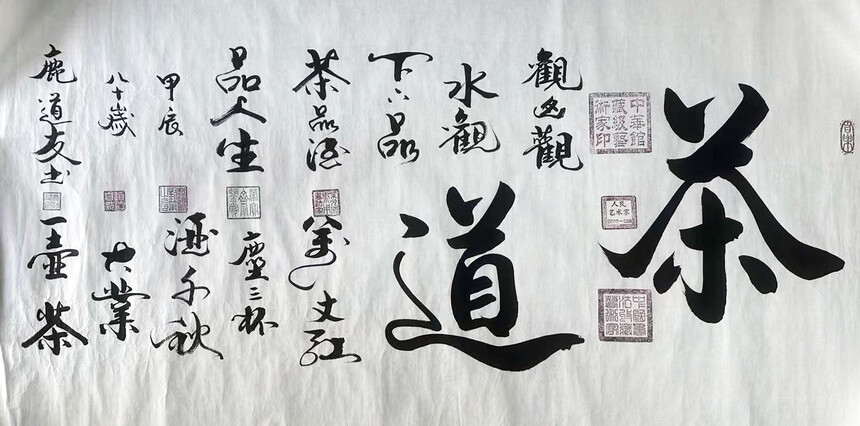 茶
道
中華館
藏级藝
術家印
人民
艺术家
觀山觀
水觀
天下品
茶品酒
品人生
甲辰
八十歲
鹿道友书
萬丈紅
塵三杯
酒千秋
大業
一壺茶